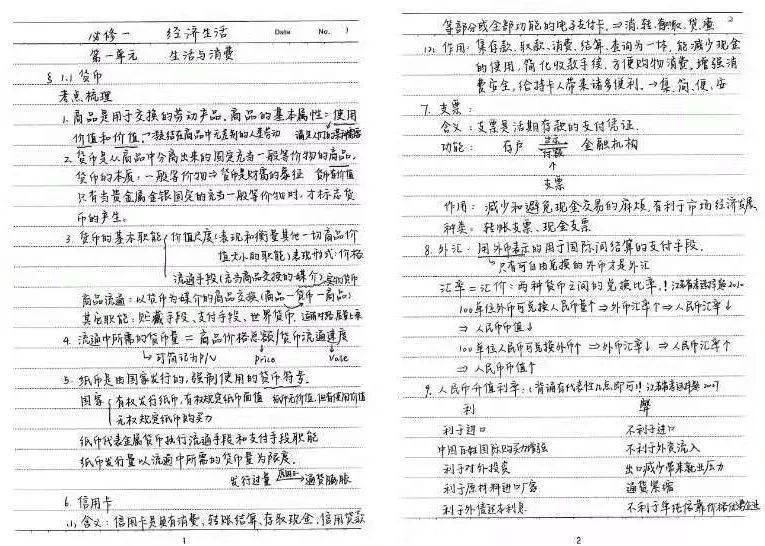 必修一 经济生活 Date No. 1
第一单元 生活与消费
§ 1.1 货币
考点梳理
1. 商品是用于交换的劳动产品。商品的基本属性：使用
价值和价值。→凝结在商品中无差别的人类劳动
2. 货币是从商品中分离出来的固定充当一般等价物的商品。
货币的本质：一般等价物⇒货币是财富的象征
只有当贵金属金银固定的充当一般等价物时，才标志货
币的产生。
3. 货币的基本职能 价值尺度（表现和衡量其他一切商品价
值大小的职能）表现形式：价格
流通手段（充当商品交换的媒介）
商品流通：以货币为媒介的商品交换（商品—货币—商品）
其它职能：贮藏手段、支付手段、世界货币、
4. 流通中所需的货币量 = 商品价格总额/货币流通速度
↳可简记为P/V Price
5. 纸币是由国家发行的，强制使用的货币符号。
国家 有权发行纸币，有权规定纸币面值 纸币无价值，但有使用价值
无权规定纸币购买力
纸币代表金属货币执行流通手段和支付手段职能
纸币发行量以流通中所需的货币量为限度。
发行过量 → 通货膨胀
6. 信用卡
(1) 含义：信用卡是具有消费、转账结算、存取现金、信用贷款
1
等部分或全部功能的电子支付卡。⇒消、转、存取、贷、查 2
(2) 作用：集存款、取款、消费、结算、查询为一体，能减少现金
的使用，简化收款手续，方便购物消费，增强消
费安全，给持卡人带来诸多便利。→集、简、便、安
7. 支票：
含义：支票是活期存款的支付凭证.
功能： 存户 金融机构
存款
↑
支票
作用： 减少和避免现金交易的麻烦，有利于市场经济发展
种类： 转账支票、现金支票
8. 外汇：用外币表示的用于国际间结算的支付手段。
↳只有可自由兑换的外币才是外汇
汇率=汇价：两种货币之间的兑换比率。！
100单位外币可兑换人民币量↑⇒外币汇率↑⇒人民币汇率↓
⇒ 人民币币值↓
100单位人民币可兑换外币↑ ⇒外币汇率↓ ⇒ 人民币汇率↑
⇒ 人民币币值↑
9. 人民币币值利率：（背诵有代表性几点即可！）
利 弊
利于进口 不利于出口
中国百姓国际购买力增强 不利于外资流入
利于对外投资 出口减少带来就业压力
利于原材料进口厂家 通货紧缩
利于外债还本利息 不利于单纯依靠价格优势企业
2